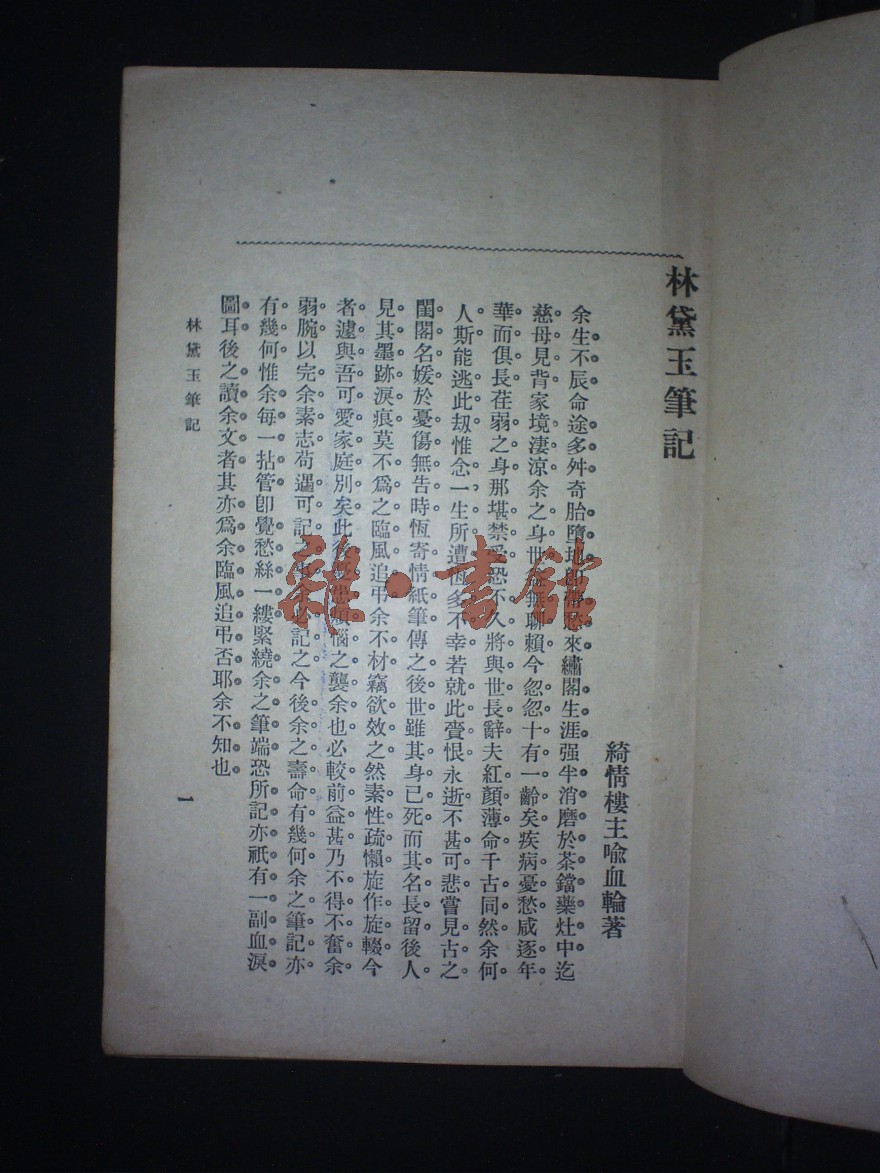 林黛玉筆記
綺情樓主喩血輪著
余生不辰命途多舛奇胎墮地卽帶愁來繡閣生涯强半消磨於茶鐺藥灶中迄
慈母見背家境淒涼余之身世益無聊賴今忽忽十有一齡矣疾病憂愁咸逐年
華而俱長荏弱之身那堪禁受恐不久將與世長辭夫紅顏薄命千古同然余何
人斯能逃此刼惟念一生所遭恆多不幸若就此賫恨永逝不甚可悲嘗見古之
閨閣名媛於憂傷無告時恆寄情紙筆傳之後世雖其身已死而其名長留後人
見其墨跡淚痕莫不爲之臨風追弔余不材竊欲效之然素性疏懶旋作旋輟今
者遽與吾可愛家庭別矣此後憂愁煩惱之襲余也必較前益甚乃不得不奮余
弱腕以完余素志苟遇可記之事余必記之今後余之壽命有幾何余之筆記亦
有幾何惟余每一拈管卽覺愁絲一縷緊繞余之筆端恐所記亦祇有一副血淚
圖耳後之讀余文者其亦爲余臨風追弔否耶余不知也
林黛玉筆記
一
雜·書館